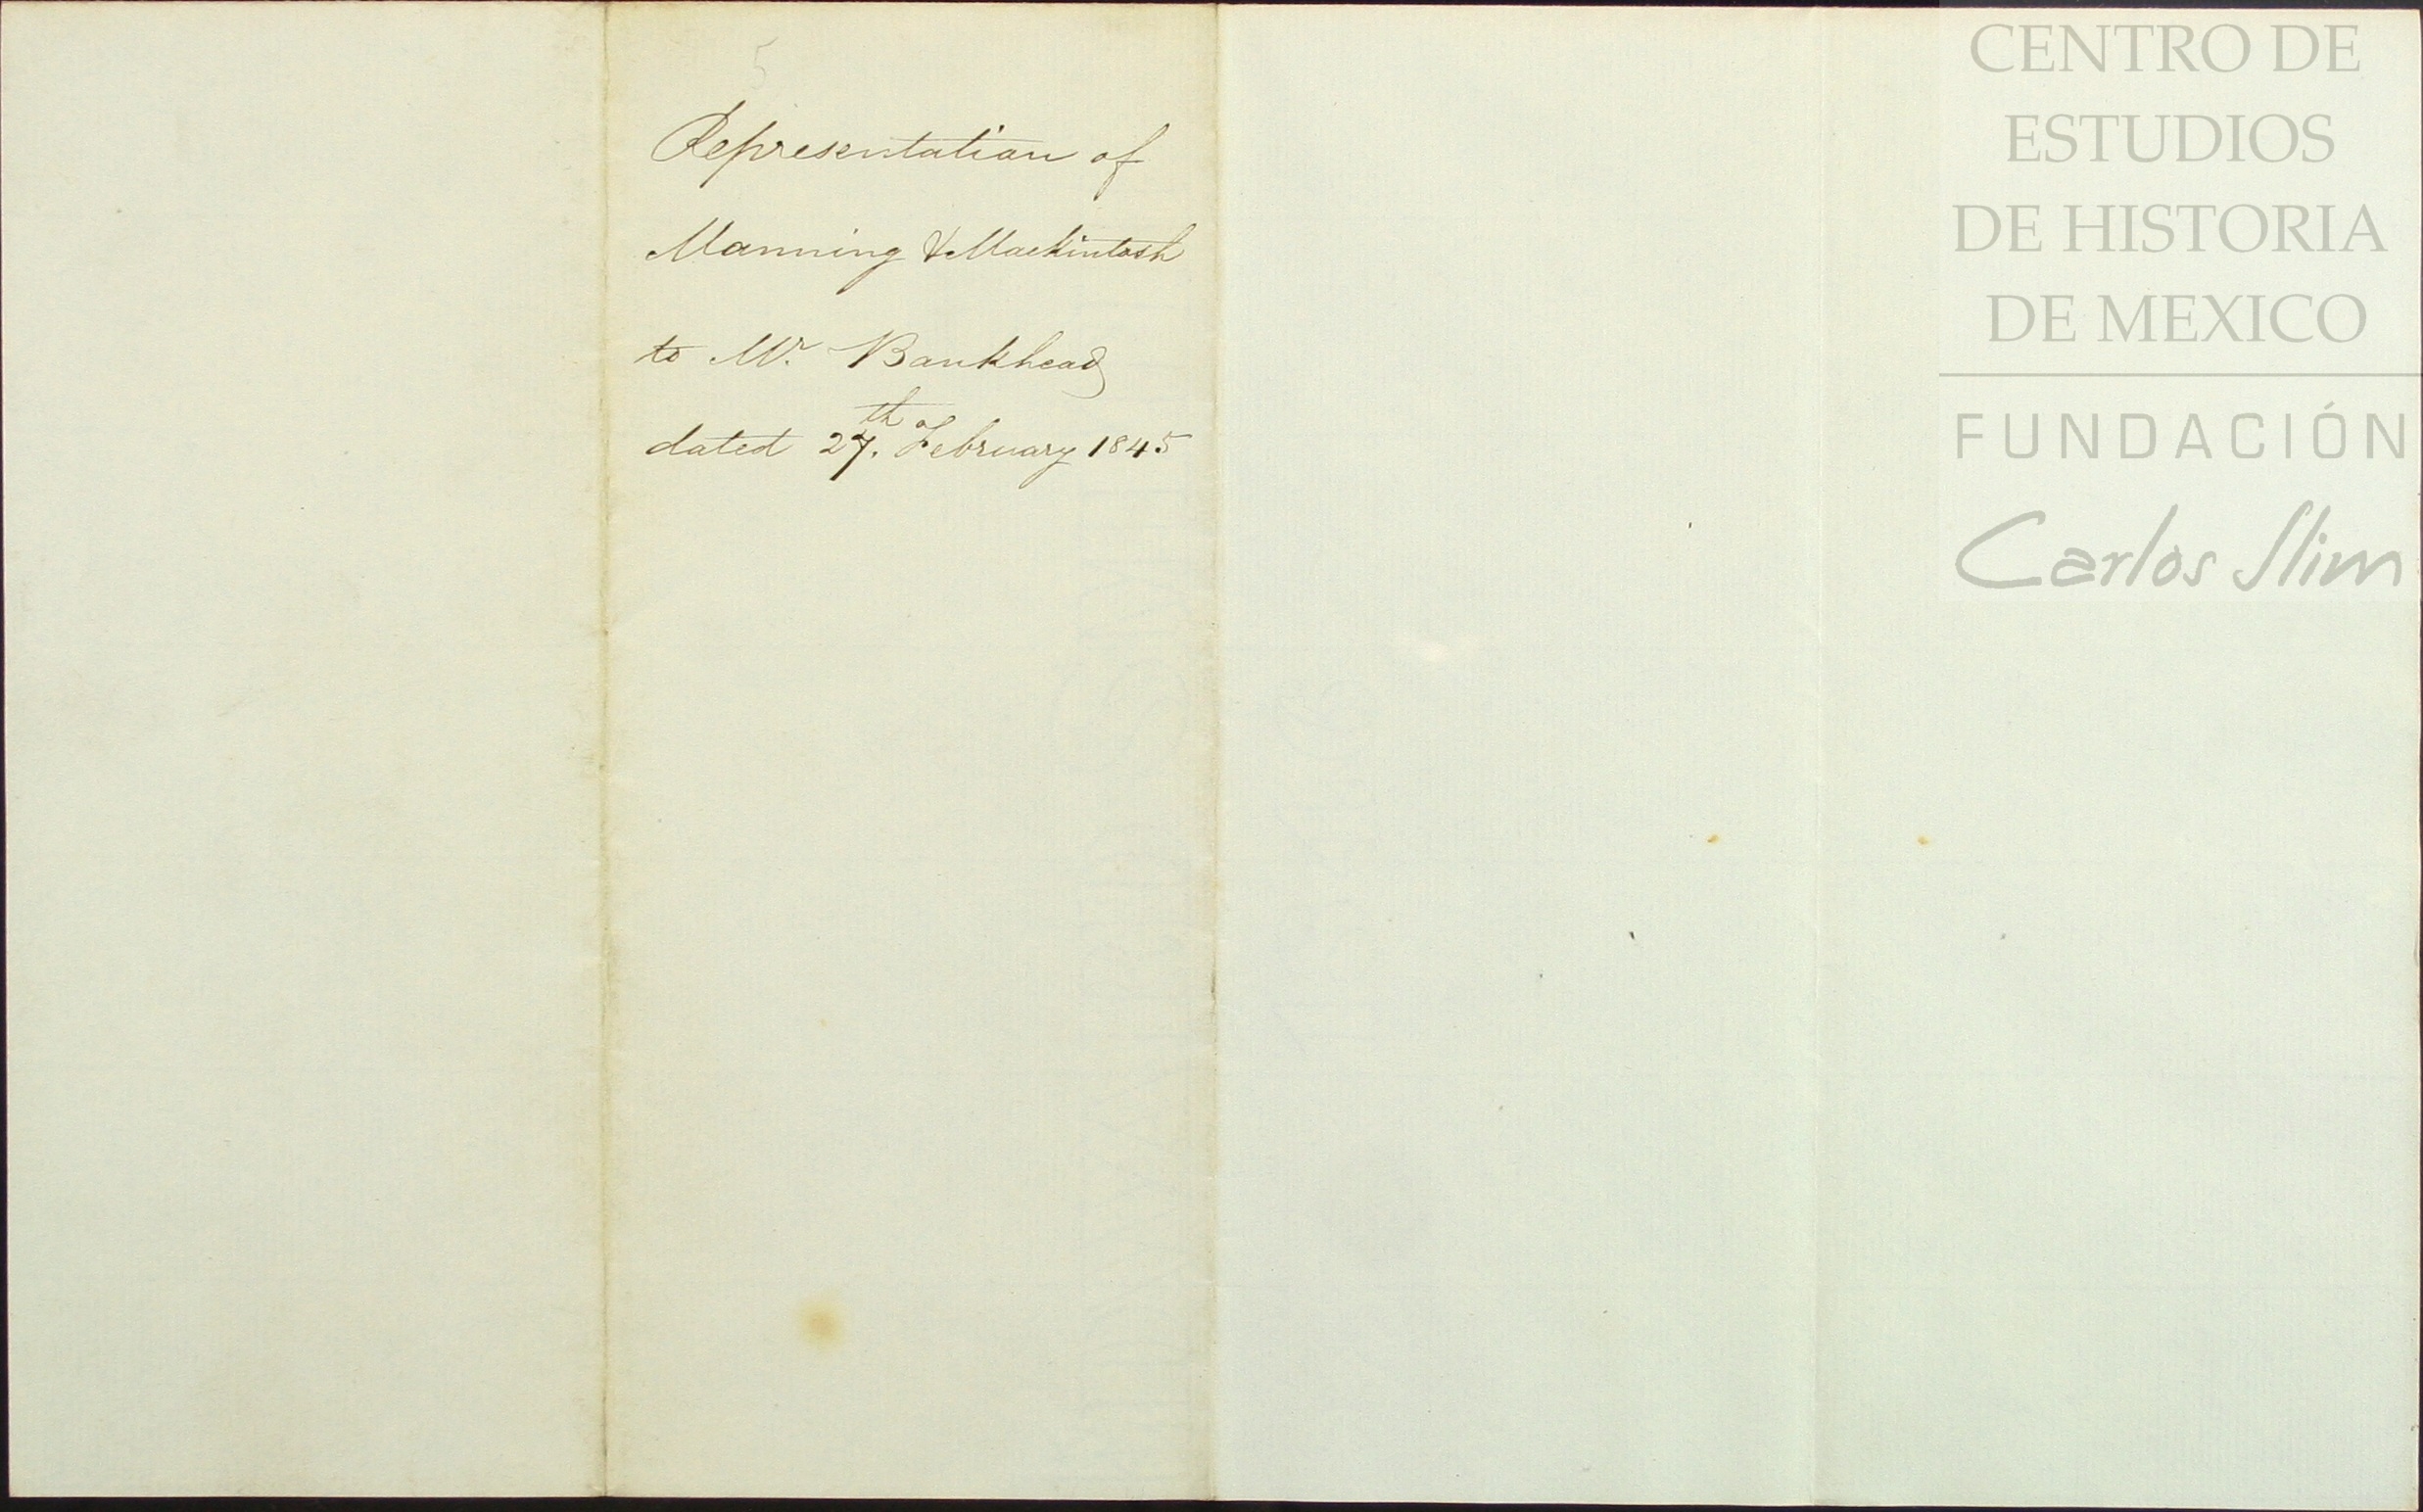 5
Representation of
Manning & Mackintosh
to Mr. Bankhead
dated 27th. February 1845
CENTRO DE
ESTUDIOS
DE HISTORIA
DE MEXICO
FUNDACIÓN
Carlos Slim